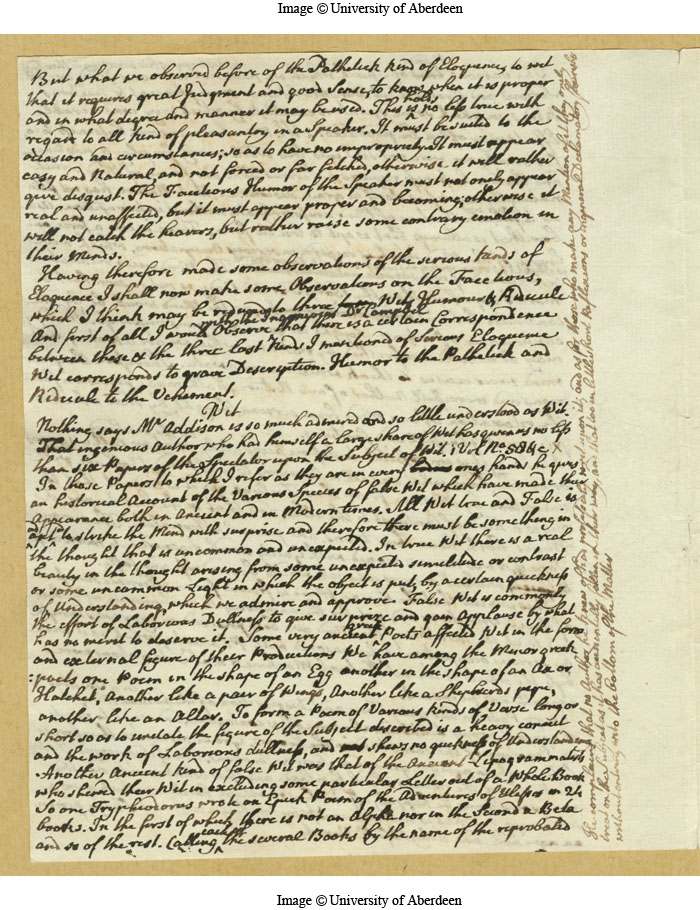 Image © University of Aberdeen
But what we observed before of the Pathetick kind of Eloquence, to wit
that it requires great Judgment and good Sense, to know when it is proper
and in what degree and manner it may be used. This holds no less true with
regard to all kind of pleasantry in a Speaker. It must be suited to the
occasion and circumstances; so as to have no impropriety. It must appear
easy and Natural, and not forced or far fetched, otherwise it will rather
give disgust. The Facetious Humor of the Speaker must not only appear
real and unaffected, but it must appear proper and becoming; otherwise it
will not catch the hearers, but rather raise some contrary emotion in
their Minds.
Having therefore made some observations of the serious kinds of
Eloquence I shall now make some Observations on the Facetious,
which I think may be reduced to three Wit, Humour & Ridicule
with the Ingenious Dr Campbel
And first of all I would Observe that there is a certain Correspondence
between these & the three last kinds I mentiond of Serious Eloquence
Wit corresponds to grave Description. Humor to the Pathetick and
Ridicule to the Vehement.
Wit
Nothing says Mr Addison is so much admired and so little understood as Wit.
That ingenious Author who had himself a large share of Wit has given us no less
than six Papers of the Spectator upon the Subject of Wit. 1 Vol No. 58 &c
In those Papers to which I refer as they are in every ones hand he gives
an historical Account of the Various Species of false Wit which have made their
appearance both in Ancient and in Modern times. All Wit true and False is
apt to strike the Mind with surprise and therefore there must be something in
the thought that is uncommon and unexpected. In true Wit there is a real
beauty in the thought arising from some unexpected similitude or contrast
or some uncommon Light in which the object is put, by a certain quickness
of Understanding, which we admire and approve. False Wit is commonly
the effort of Laborious Dullness to give surprize and gain Applause by what
has no merit to deserve it. Some very ancient Poets affected Wit in the form
and external figure of their Productions We have among the Minor greek
poets one Poem in the shape of an Egg another in the shape of an Ax or
Hatchet, Another like a pair of Wings, Another like a Shepherds pipe,
another like an Altar. To form a Poem of Various kinds of Verse long or
short so as to imitate the figure of the Subject described is a heavy conceit
and the work of Laborious dullness, and shews no quickness of Understanding
Another Ancient kind of false Wit was that of the Ancient Lipogrammatists
who shewed their Wit in excluding some particular Letter out of a Whole Book
So one Tryphiodorus wrote an Epick Poem of the Adventures of Ulysses in 24
books. In the first of which there is not an Alpha nor in the Second a Beta
and so of the rest. Calling each of the several Books by the name of the reprobated
without entering into the bottom of the Matter
Image © University of Aberdeen